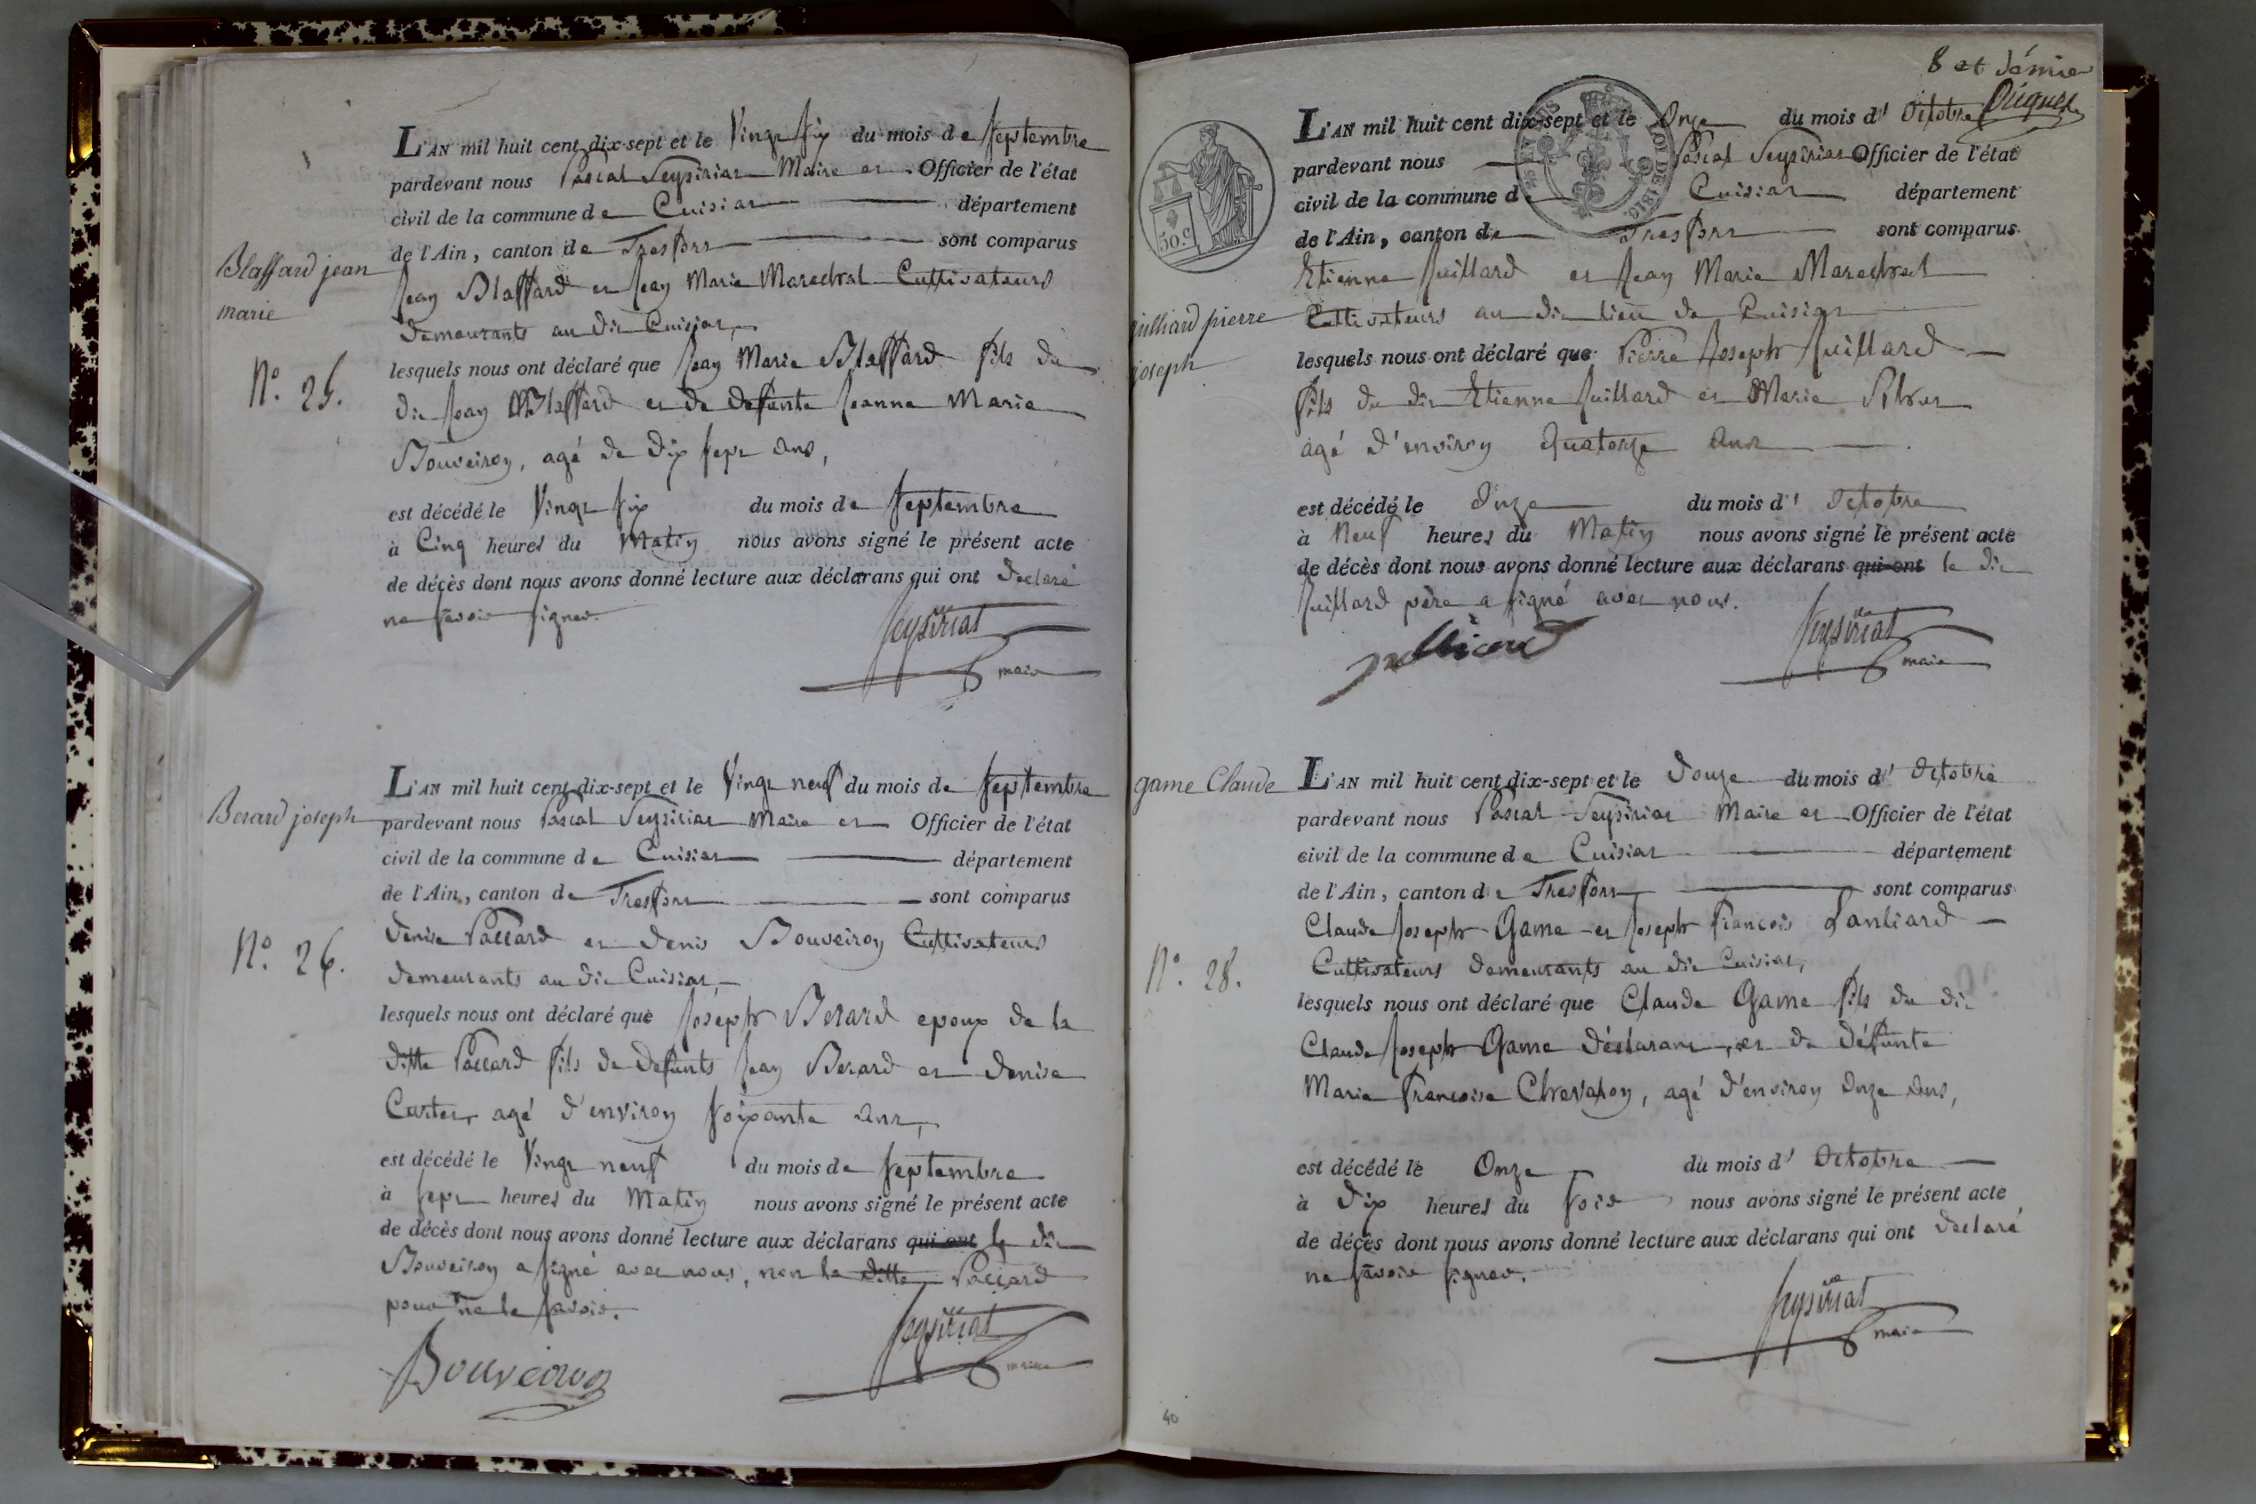 L'AN mil huit cent dix-sept et le Vingt six du mois de Septembre
pardevant nous Pascal Seysiriat Maire et Officier de l'état
civil de la commune de Cuisiat département
de l'Ain, canton de Treffort sont comparus
Blaffard jean
marie
Jean Blaffard et Jean Marie Marechal Cultivateurs
demeurants au dit Cuisiat,
lesquels nous ont déclaré que Jean Marie Blaffard fils du
N.o 25.
dit Jean Blaffard et de defunte Jeanne Marie
Bouveiron, agé de dix sept ans,
est décédé le Vingt six du mois de Septembre
à Cinq heures du Matin nous avons signé le présent acte
de décès dont nous avons donné lecture aux déclarans qui ont declaré
ne savoir signer.
Seysiriat
maire
L'AN mil huit cent dix-sept et le Vingt neuf du mois de Septembre
Berard joseph
pardevant nous Pascal Seysiriat Maire et Officier de l'état
civil de la commune de Cuisiat département
de l'Ain, canton de Treffort sont comparus
Denise Paccard et Denis Bouveiron Cultivateurs
N.o 26.
demeurants au dit Cuisiat,
lesquels nous ont déclaré que Joseph Berard epoux de la
ditte Paccard fils de defunts Jean Berard et Denise
Curtet agé d'environ soixante ans,
est décédé le Vingt neuf du mois de Septembre
à sept heures du Matin nous avons signé le présent acte
de décès dont nous avons donné lecture aux déclarans qui ont le dit
Bouveiron a signé avec nous, non la ditte Paccard
pour ne le savoir.
Seysiriat
maire
Bouveiron
8 et dernier
L'AN mil huit cent dix-sept et le Onze du mois d' Octobre
pardevant nous Pascal Seysiriat Officier de l'état
civil de la commune de Cuisiat département
de l'Ain, canton de Treffort sont comparus
LOI DE 1816
50.c
Etienne Juillard et Jean Marie Marechal
julliard pierre
joseph
Cultivateurs au dit lieu de Cuisiat
lesquels nous ont déclaré que Pierre Joseph Juillard
fils du dit Etienne Juillard et Marie
agé d'environ Quatorze ans
est décédé le Onze du mois d' Octobre
à Neuf heures du Matin nous avons signé le présent acte
de décès dont nous avons donné lecture aux déclarans qui ont le dit
Juillard père a signé avec nous.
Seysiriat
maire
julliard
game Claude
L'AN mil huit cent dix-sept et le Douze du mois d' Octobre
pardevant nous Pascal Seysiriat Maire et Officier de l'état
civil de la commune de Cuisiat département
de l'Ain, canton de Treffort sont comparus
Claude Joseph Game et Joseph François
N.o 28.
Cultivateurs demeurants au dit Cuisiat,
lesquels nous ont déclaré que Claude Game fils du dit
Claude Joseph Game déclarant, et de défunte
Marie Françoise Chevalon, agé d'environ Onze ans,
est décédé le Onze du mois d' Octobre
à Dix heures du soir nous avons signé le présent acte
de décès dont nous avons donné lecture aux déclarans qui ont declaré
ne savoir signer.
Seysiriat
maire
40